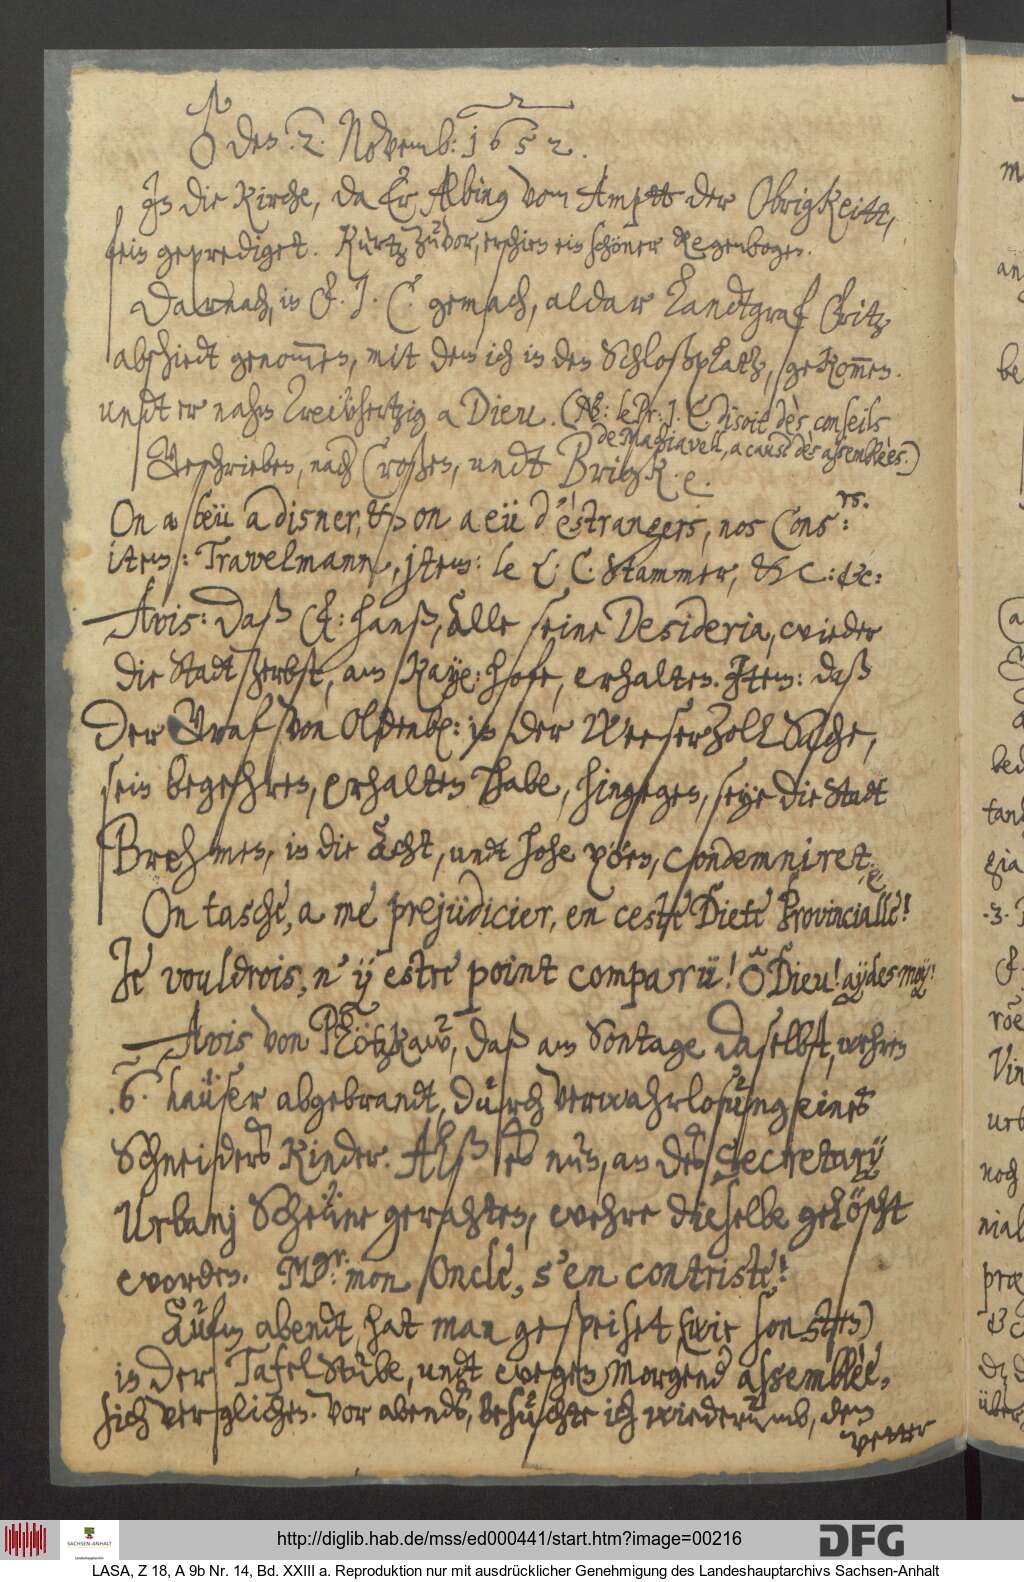 ♂ den .2. Novemb: 1652.
In die Kirche, da Er Albinus von Ampt der Obrigkeitt,
fein geprediget. Kurtz zuvor, erschien ein schöner Regenbogen.
Darnach, in F. J. C. gemach, aldar Landtgraf Fritz
abschiedt genommen, mit dem ich in den Schloßplatz, gekommen.
undt er nahm trewhertzig a Dieu. (Nb: le Pr: J. C disoit dès conseils
de Machiavell, a cause dès assemblèes.)
Geschrieben, nach Croßen, undt Brigk. e.
On a leü a disner, & on a eü d'èstrangers, nos Cons:rs.
item: Travelmann, jtem: le L. C. Stammer, & c.: &c:
Avis: daß F: Hanß, alle seine Desideria, wieder
die Stadt Zerbst, am Kaye: hofe, erhalten. Jtem: daß
der Graf von Oldenb: in der WeeserZoll Sache,
sein begehren, erhalten habe, hingegen, seye die Stadt
Brehmen, in die Acht, undt hohe poen, condemniret.
On tasche, a me prejüdicier, en ceste Diete Provincialle!
Je vouldrois, n'ÿ estre point comparü! Ô Dieu! aÿdes-moÿ!
Avis von Plötzkaw, daß am Sontage daselbst, wehren
.6. haüser abgebrandt, durch verwahrlosung eines
Schneiders Kinder. Alß es nun, an des Secretarÿ
Urbanj Scheüne gerahten, wehre dieselbe gelöscht
worden. Mgr: mon Oncle, s'en contriste!
Aufm abendt, hat man gespeiset (wie sonsten)
in der Tafel Stube, undt wegen Morgend assemblèe,
sich verglichen. Vor abends, besuchte ich wiederumb, den
vetter
http://diglib.hab.de/mss/ed000441/start.htm?image=00216
SACHSEN-ANHALT
DFG
LASA, Z 18, A 9b Nr. 14, Bd. XXIII a. Reproduktion nur mit ausdrücklicher Genehmigung des Landeshauptarchivs Sachsen-Anhalt